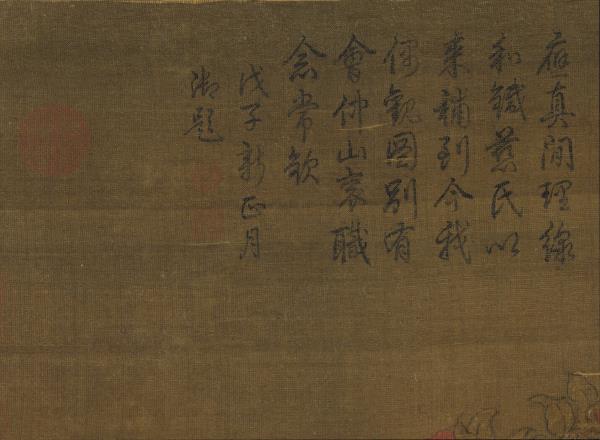 應真閒理線
和鍼慈氏以
來補到今我
偶觀圖別有
會仲山衮職
念常欽
戊子新正月
御題